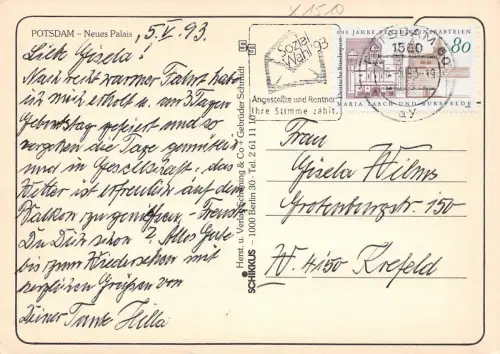 X 150
POTSDAM – Neues Palais
15.V.93
Liebe Gisela!
Nach recht warmer Fahrt habe
ich mich erholt u. an 3 Tagen
Geburtstag gefeiert und so
vergehen die Tage gemütlich
und in Gesellschaft, das
Wetter ist erfreulich auf dem
Balkon zu genießen – Freust
Du Dich schon? Alles Gute
bis zum Wiedersehen mit
herzlichen Grüßen von
Deiner Tante Hilla
Herst. u. Verlag Schöning & Co + Gebrüder Schmidt
SCHIKKUS – 1000 Berlin 30 · Tel. 2 61 11
Sozial
Wahl '93
Angestellte und Rentner
Ihre Stimme zählt.
POTSDAM
1560
93.-19
Deutsche Bundespost
80
MARIA LAACH UND BURSFELDE
Frau
Gisela Wilms
Grotenburgstr. 150
W. 4150 Krefeld